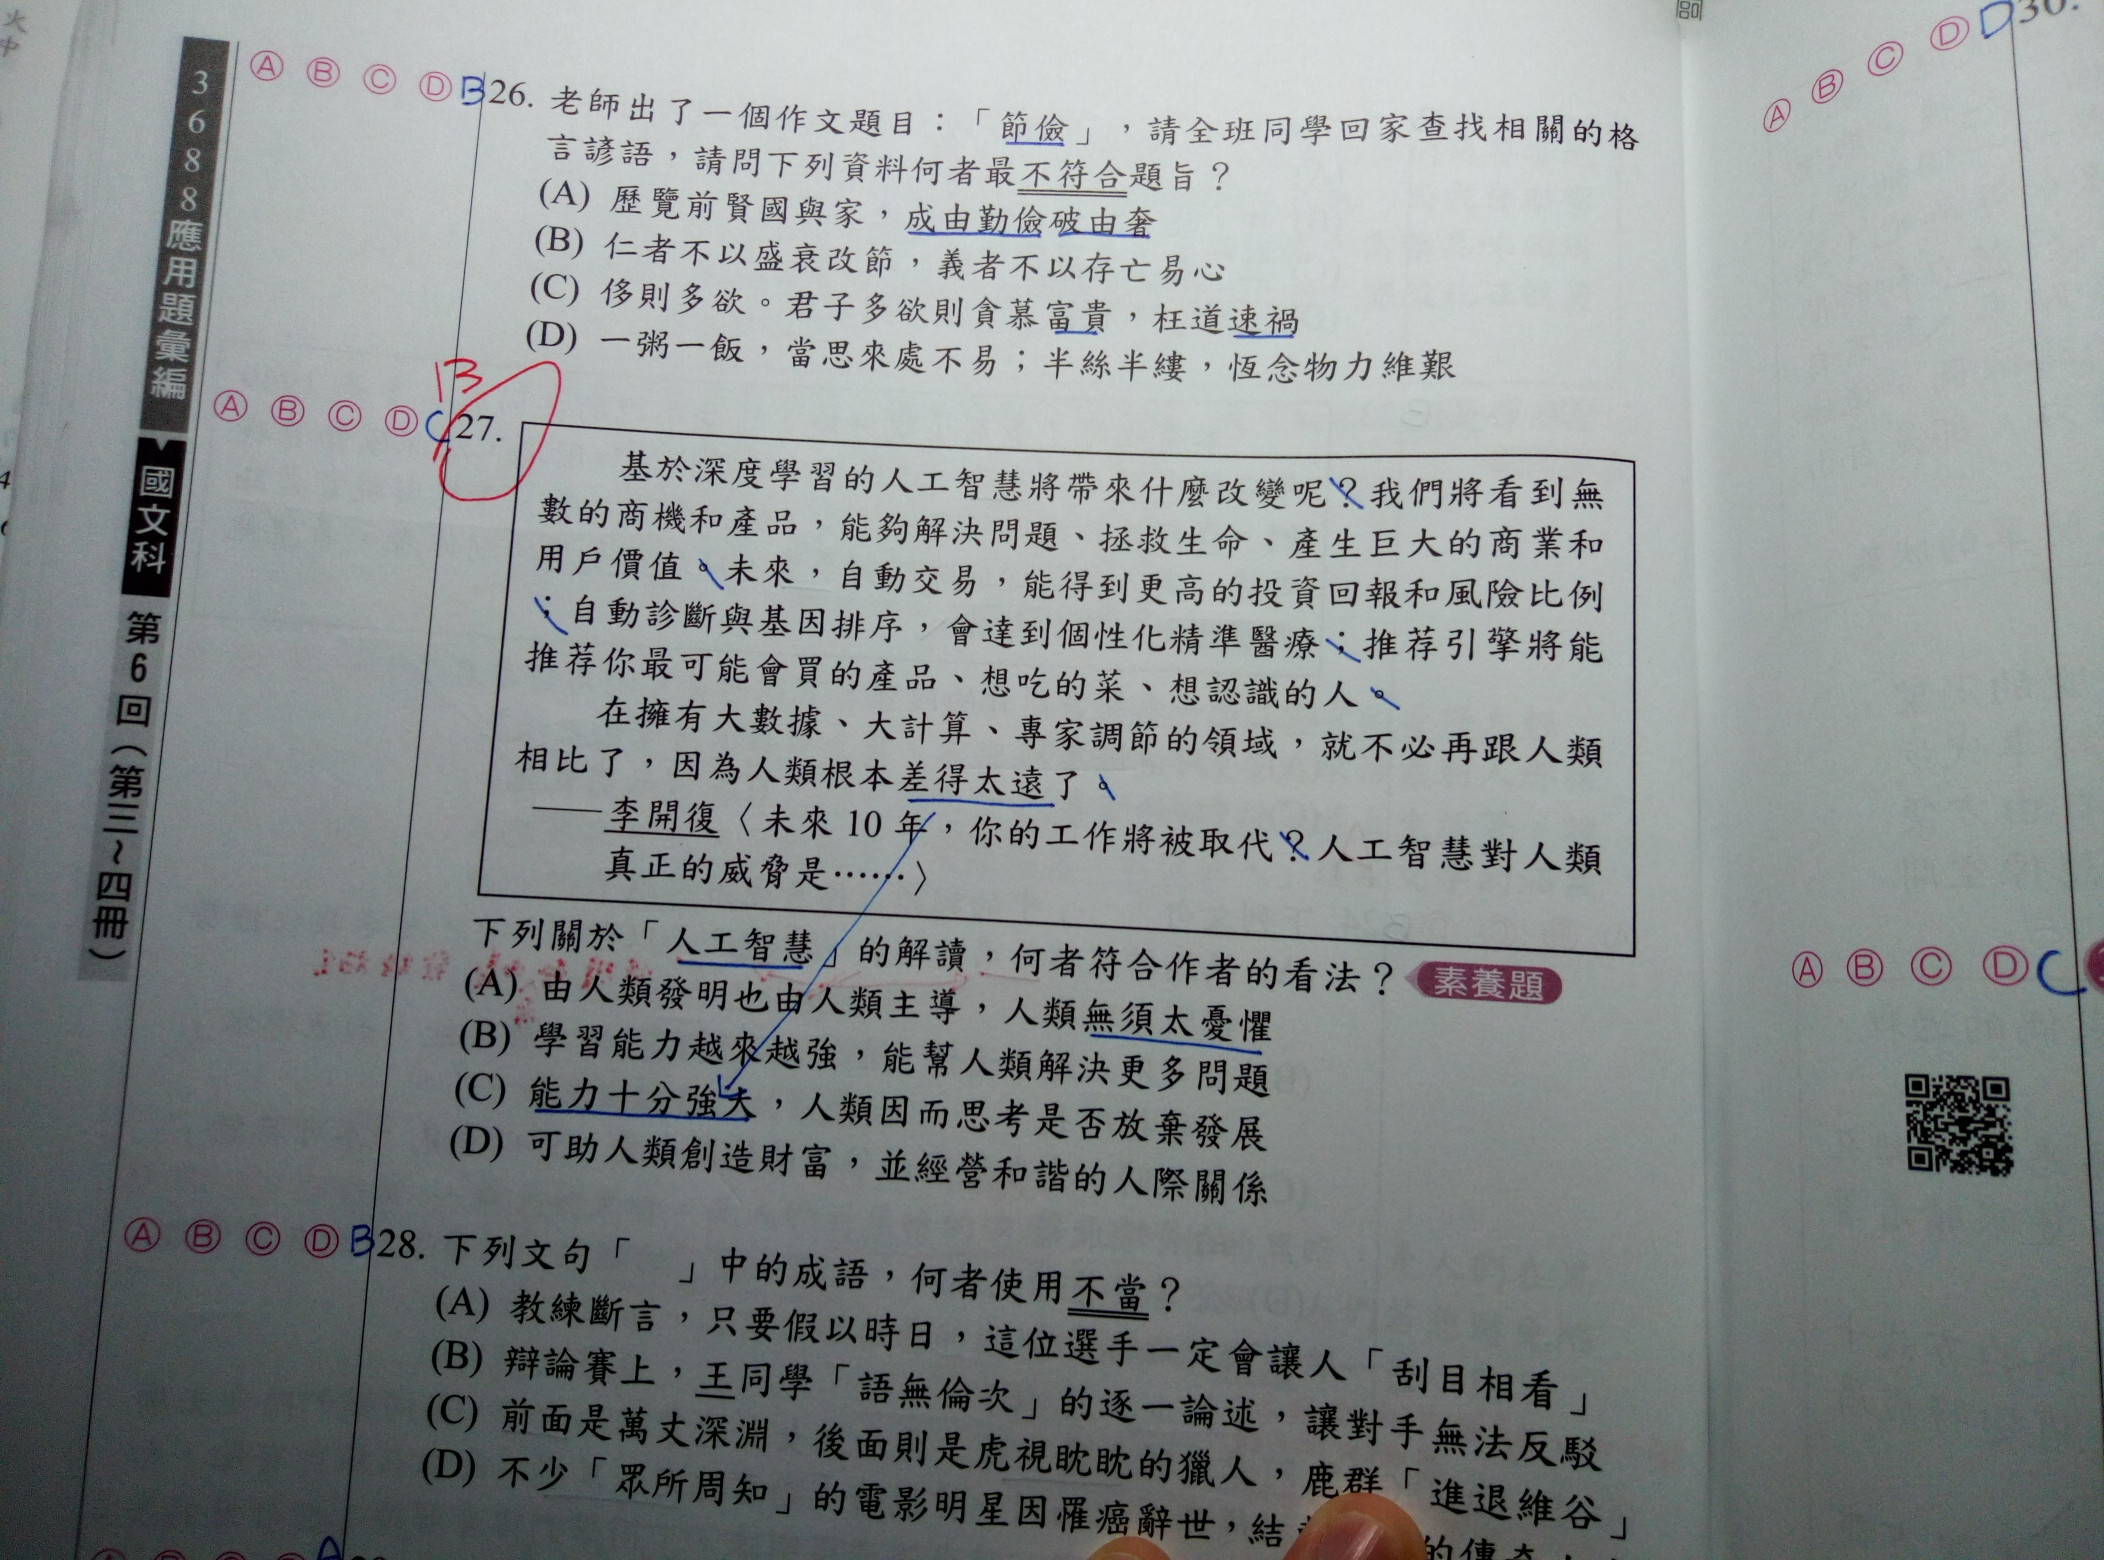 3688應用題彙編
國文科
第6回（第三~四冊）
Ⓐ Ⓑ Ⓒ Ⓓ B 26. 老師出了一個作文題目：「節儉」，請全班同學回家查找相關的格
言諺語，請問下列資料何者最不符合題旨？
(A) 歷覽前賢國與家，成由勤儉破由奢
(B) 仁者不以盛衰改節，義者不以存亡易心
(C) 侈則多欲。君子多欲則貪慕富貴，枉道速禍
(D) 一粥一飯，當思來處不易；半絲半縷，恆念物力維艱
B
Ⓐ Ⓑ Ⓒ Ⓓ C 27.
基於深度學習的人工智慧將帶來什麼改變呢？我們將看到無
數的商機和產品，能夠解決問題、拯救生命、產生巨大的商業和
用戶價值。未來，自動交易，能得到更高的投資回報和風險比例
；自動診斷與基因排序，會達到個性化精準醫療；推荐引擎將能
推荐你最可能會買的產品、想吃的菜、想認識的人。
在擁有大數據、大計算、專家調節的領域，就不必再跟人類
相比了，因為人類根本差得太遠了。
——李開復〈未來 10 年，你的工作將被取代？人工智慧對人類
真正的威脅是……〉
下列關於「人工智慧」的解讀，何者符合作者的看法？ 素養題
(A) 由人類發明也由人類主導，人類無須太憂懼
(B) 學習能力越來越強，能幫人類解決更多問題
(C) 能力十分強大，人類因而思考是否放棄發展
(D) 可助人類創造財富，並經營和諧的人際關係
Ⓐ Ⓑ Ⓒ Ⓓ B 28. 下列文句「　」中的成語，何者使用不當？
(A) 教練斷言，只要假以時日，這位選手一定會讓人「刮目相看」
(B) 辯論賽上，王同學「語無倫次」的逐一論述，讓對手無法反駁
(C) 前面是萬丈深淵，後面則是虎視眈眈的獵人，鹿群「進退維谷」
(D) 不少「眾所周知」的電影明星因罹癌辭世，結
Ⓐ Ⓑ Ⓒ Ⓓ D 30.
Ⓐ Ⓑ Ⓒ Ⓓ C